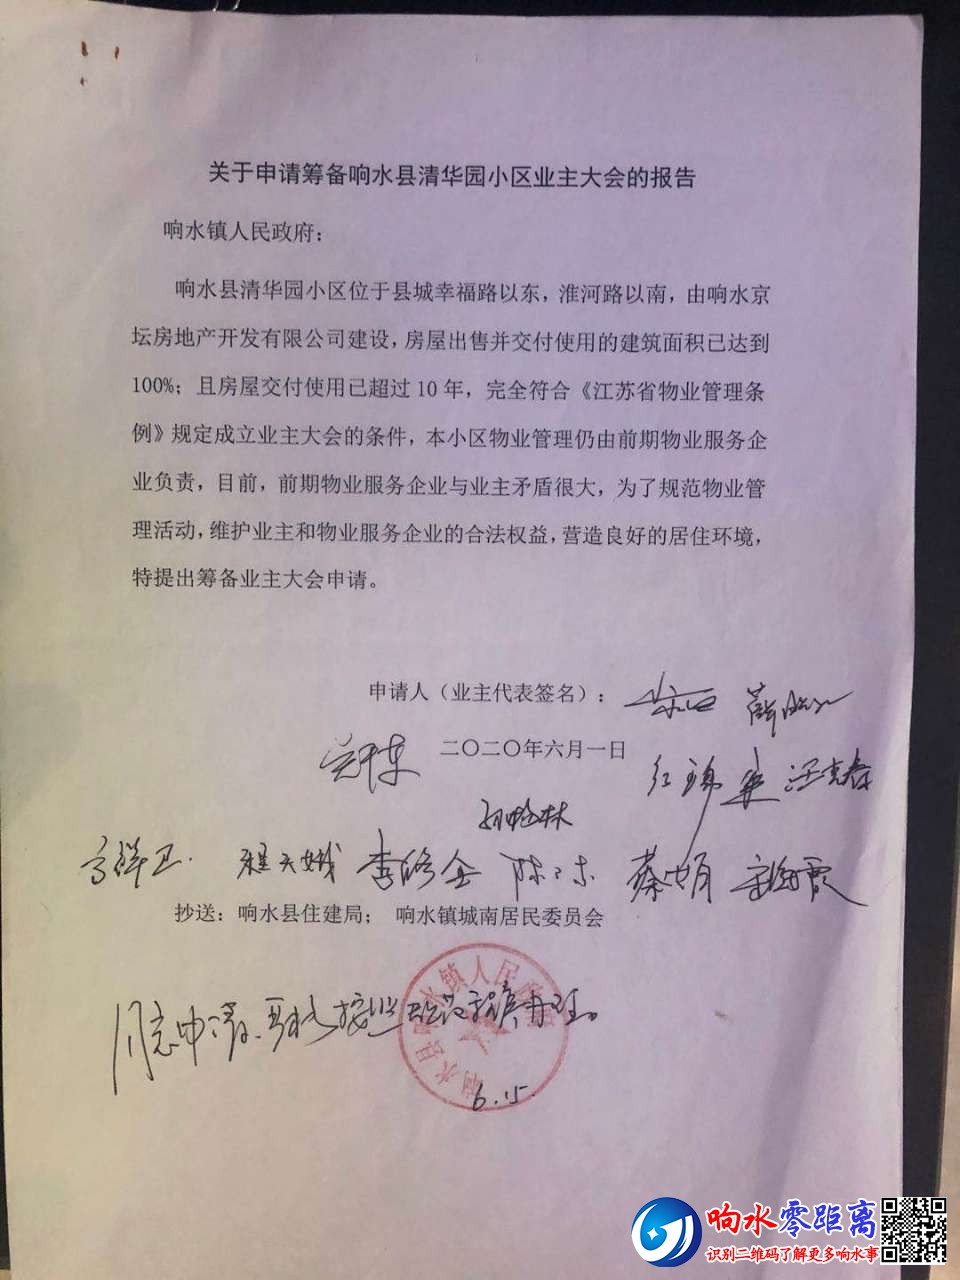 关于申请筹备响水县清华园小区业主大会的报告
响水镇人民政府：
响水县清华园小区位于县城幸福路以东，淮河路以南，由响水京
坛房地产开发有限公司建设，房屋出售并交付使用的建筑面积已达到
100%；且房屋交付使用已超过 10 年，完全符合《江苏省物业管理条
例》规定成立业主大会的条件，本小区物业管理仍由前期物业服务企
业负责，目前，前期物业服务企业与业主矛盾很大，为了规范物业管
理活动，维护业主和物业服务企业的合法权益，营造良好的居住环境，
特提出筹备业主大会申请。
申请人（业主代表签名）：
二〇二〇年六月一日
汪克春
李修全
蔡娟
抄送：响水县住建局； 响水镇城南居民委员会
响水县响水镇人民政府
同意申请
办理。
6.15.
响水零距离
识别二维码了解更多响水事